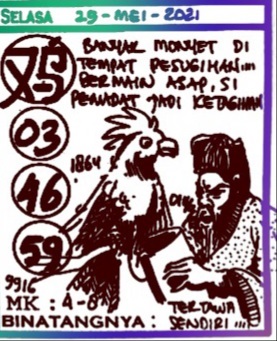 SELASA 29-MEI-2021
BANYAK MONYET DI
TEMPAT PESUGIHAN...
BERMAIN ASAP, SI
PEMADAT JADI KETAGIHAN
03
1864
46
59
9916
MK : 4-8
TERTAWA
BINATANGNYA : SENDIRI !!!